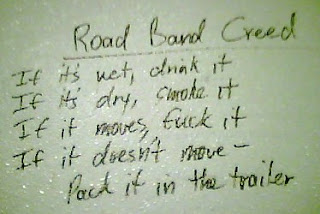 Road Band Creed
If it's wet, drink it
If it's dry, smoke it
If it moves, fuck it
If it doesn't move -
Pack it in the trailer